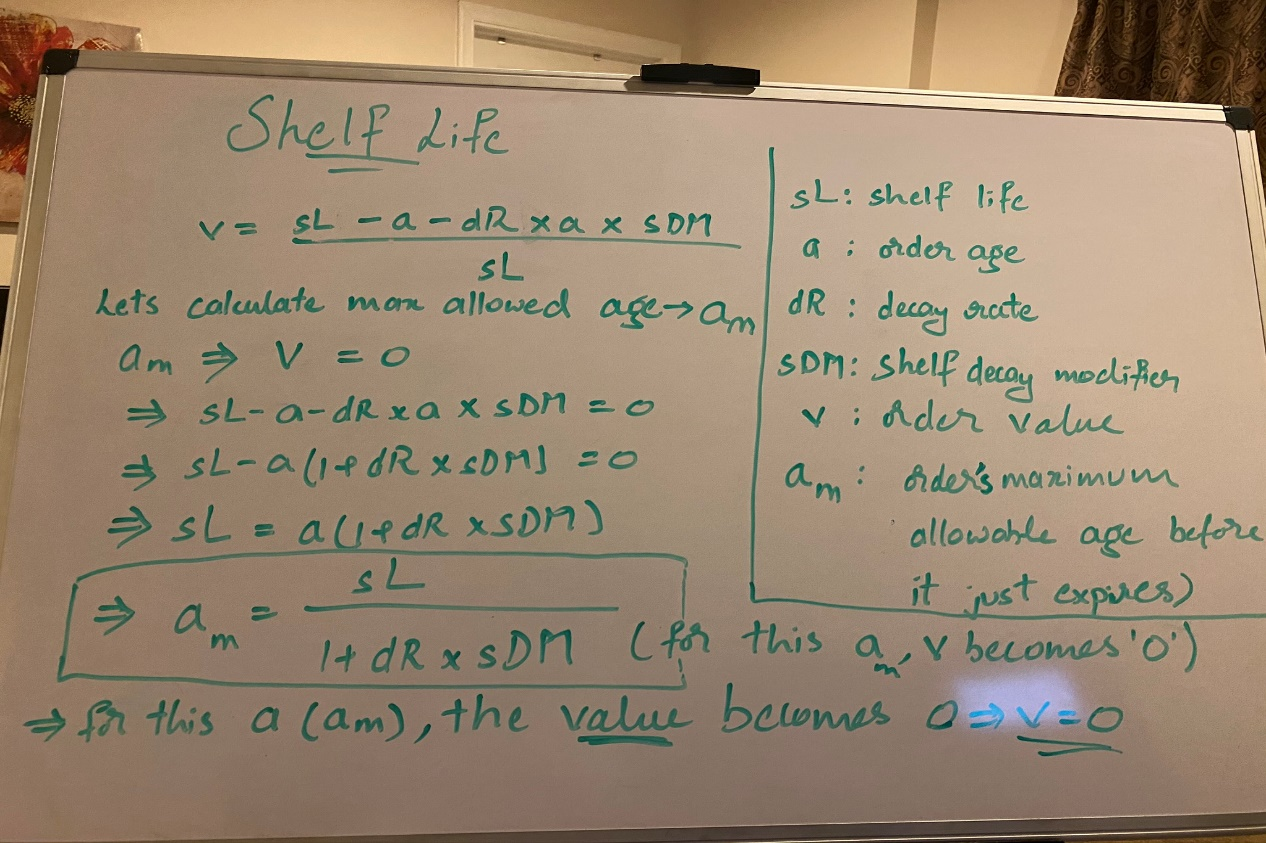 Shelf Life
v = sL - a - dR x a x sDM
sL
Lets calculate max allowed age → am
am ⇒ V = 0
⇒ sL - a - dR x a x sDM = 0
⇒ sL - a (1 + dR x sDM) = 0
⇒ sL = a (1 + dR x sDM)
⇒ am = sL
1 + dR x sDM (for this am, v becomes '0')
⇒ for this a (am), the value becomes 0 ⇒ v = 0
sL: shelf life
a : order age
dR : decay rate
sDM: shelf decay modifier
v : order value
am : order's maximum
allowable age before
it just expires)